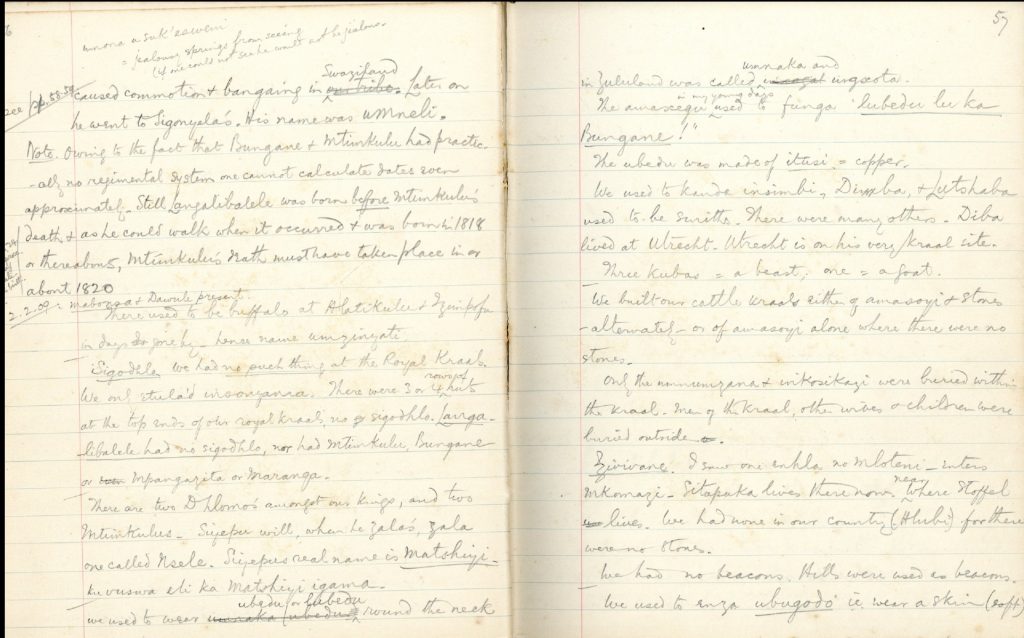 6
umona u suk'esweni
= jealousy springs from seeing
(if one could not see he would not be jealous.
See pp. 55-59
Swaziland
caused commotion & bangaing in our tribe. Later on
he went to Sigonyela's. His name was uMneli.
Note. Owing to the fact that Bungane & Mtimkulu had practic-
-ally no regimental system one cannot calculate dates even
approximately. Still Langalibalele was born before Mtimkulu's
death, & as he could walk when it occurred & was born in 1818
or thereabouts, Mtimkulu's death must have taken place in or
about 1820
2.2.09: Mabonsa & Dawule present.
There used to be buffalo at Hlatikulu &
in days gone by - hence name umzinyati.
Sigodhlo. We had no such thing at the Royal Kraals.
rows of
We only etula'd insonyama. There were 3 or 4 huts
at the top ends of our royal kraals, no sigodhlo. Langa-
-libalele had no sigodhlo, nor had Mtimkulu, Bungane
or Mpangazita or Maranga.
There are two Dhlomos amongst our kings, and two
Mtimkulus. Siyepu will, when he zalas, zala
one called Nsele. Siyepu's real name is Matshiyi -
ku vuswa eli ka Matshiyi igama.
ubedu or lubedu
We used to wear umnaka (ubedu) round the neck
57
umnaka and
in Zululand was called ingxota.
in my young days
The amasegu used to funga 'lubedu lu ka
Bungane!"
The ubedu was made of itusi = copper.
We used to kanda insimbi, Dimba, & Lutshaba
used to be smiths. There were many others. Diba
lived at Utrecht. Utrecht is on his very kraal site.
Three kubas = a beast; one = a goat.
We built our cattle kraals either of amasoyi & stones
- alternately - or of amasoyi alone where there were no
stones.
Only the umnumzana & inkosikazi were buried within
the kraal. Men of the kraal, other wives & children were
buried outside.
Zivivane. I saw one enhla no Mloteni - enters
near
Mkomazi - Sitapuka lives there now. where Stoffel
lives. We had none in our country (Hlubi) for there
were no stones.
We had no beacons. Hills were used as beacons.
We used to enza ubugodo ie. wear a skin (soft)